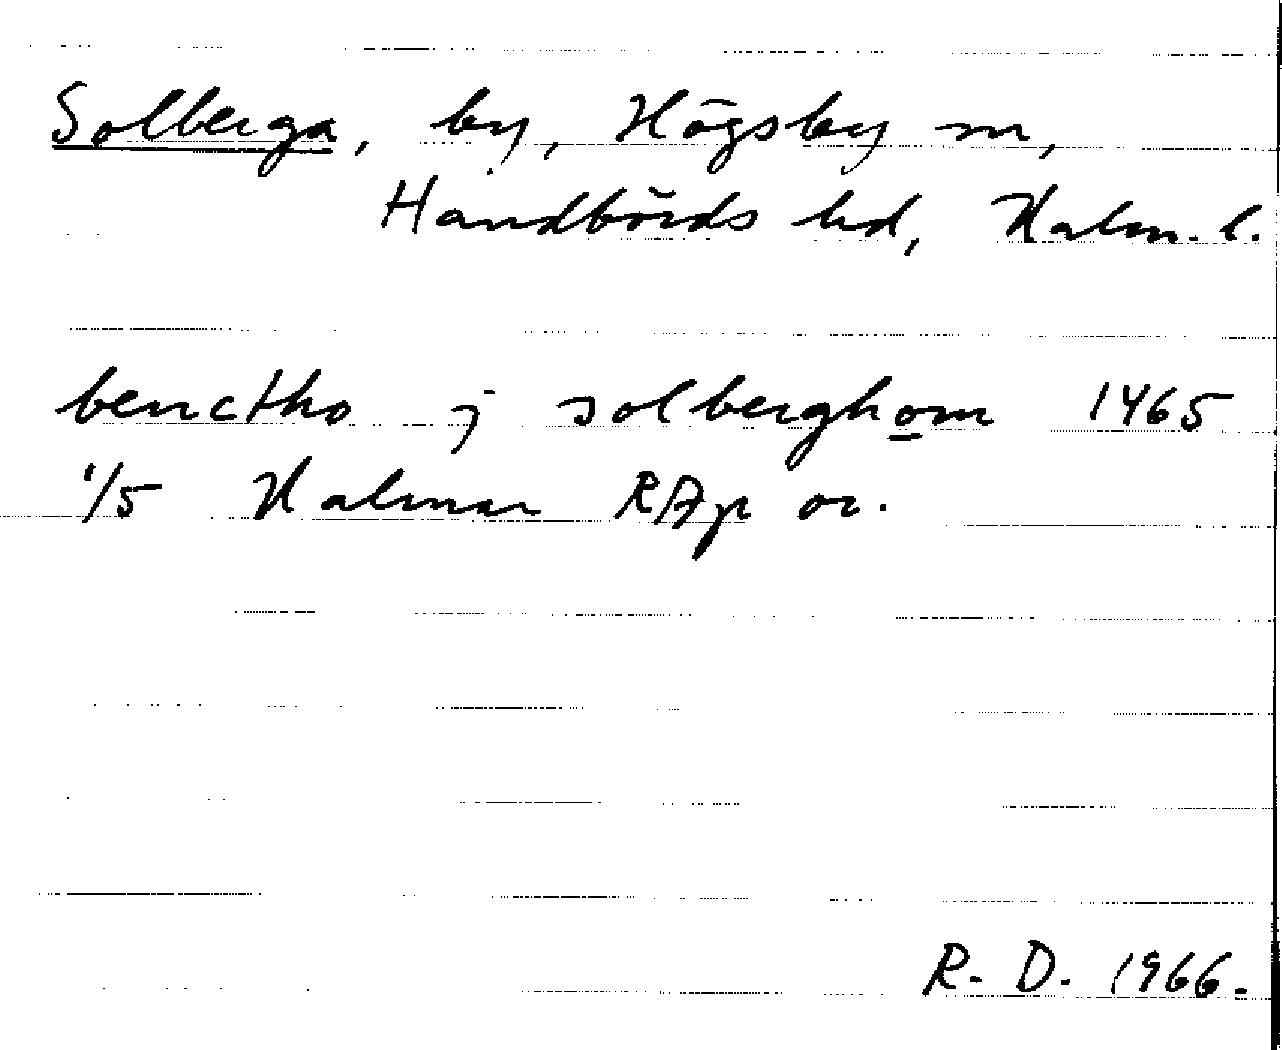 Solberga, by, Högsby sn,
Handbörds hd, Kalm. l.
benctho j solberghom 1465
1/5 Kalmar RAp or.
R. D. 1966.